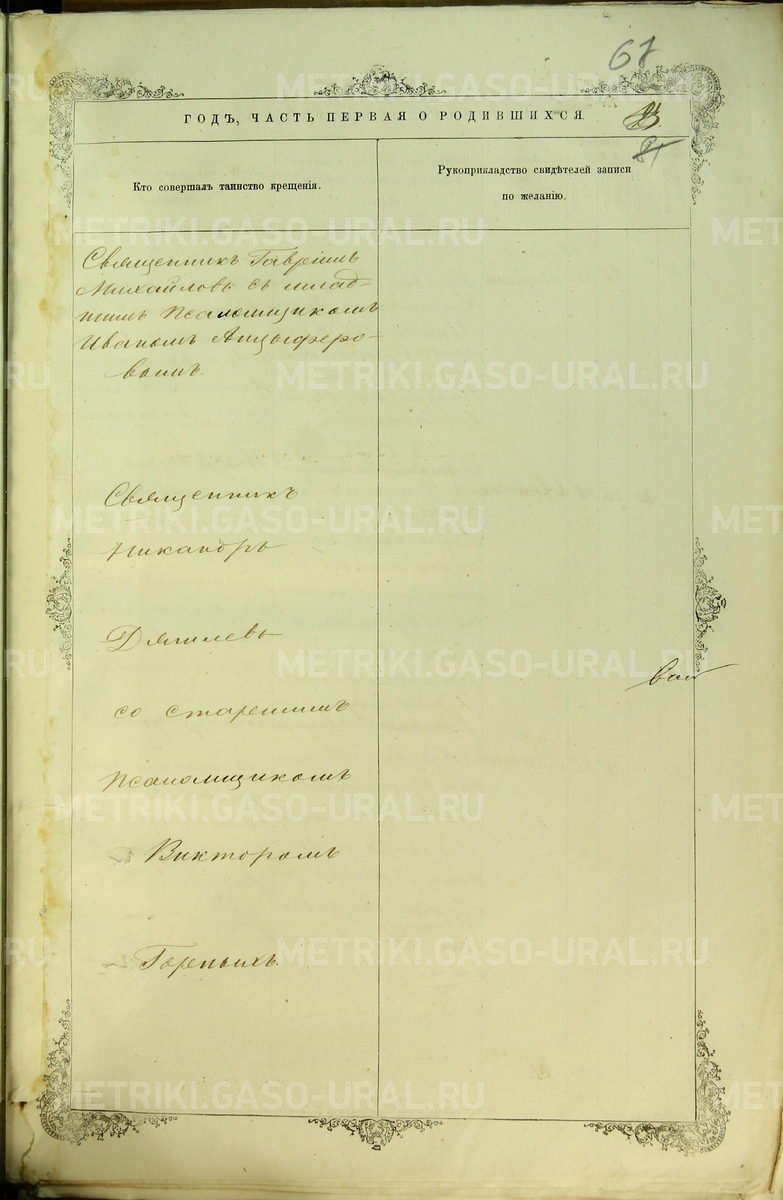 67
ГОДЪ, ЧАСТЬ ПЕРВАЯ О РОДИВШИХСЯ.
Кто совершалъ таинство крещенія.
Рукоприкладство свидѣтелей записи
по желанію.
Священникъ Гавріилъ
Михайловъ съ млад-
шимъ Псаломщикомъ
Иваномъ Анцыферо-
вымъ.
Священникъ
Никандръ
Дягилевъ
со старшимъ
Псаломщикомъ
Викторомъ
Горныхъ.
METRIKI.GASO-URAL.RU